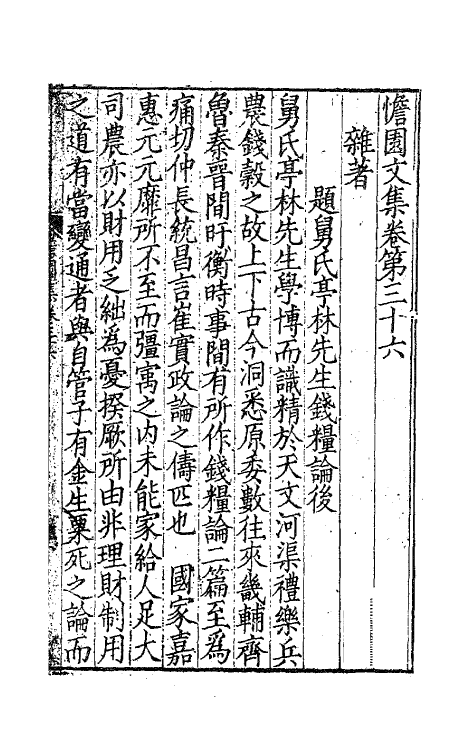 憺園文集卷第三十六
雜著
題舅氏亭林先生錢糧論後
舅氏亭林先生學博而識精於天文河渠禮樂兵
農錢穀之故上下古今洞悉原委數往來畿輔齊
魯秦晉間盱衡時事間有所作錢糧論二篇至爲
痛切仲長統昌言崔寔政論之儔匹也 國家嘉
惠元元靡所不至而彊寓之内未能家給人足大
司農亦以財用乏絀為憂揆厥所由非理財制用
之道有當變通者與自管子有金生粟死之論而